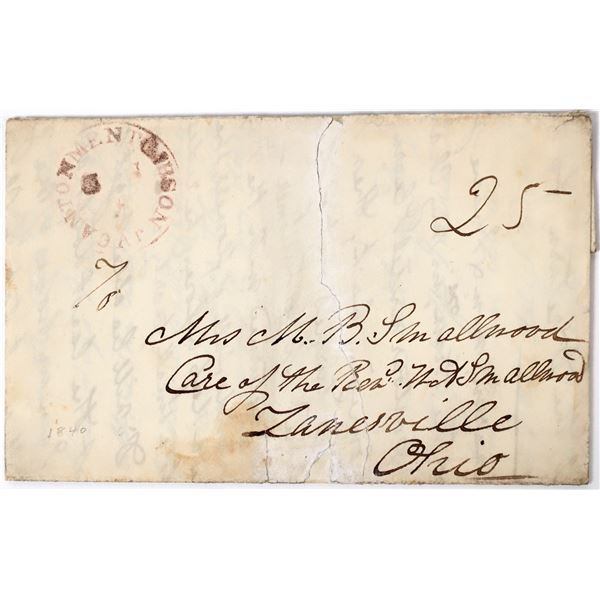 CANTONMENT GIBSON
25
To
Mrs M. B. Smallwood
Care of the Revd. W A Smallwood
Zanesville
Ohio
1840